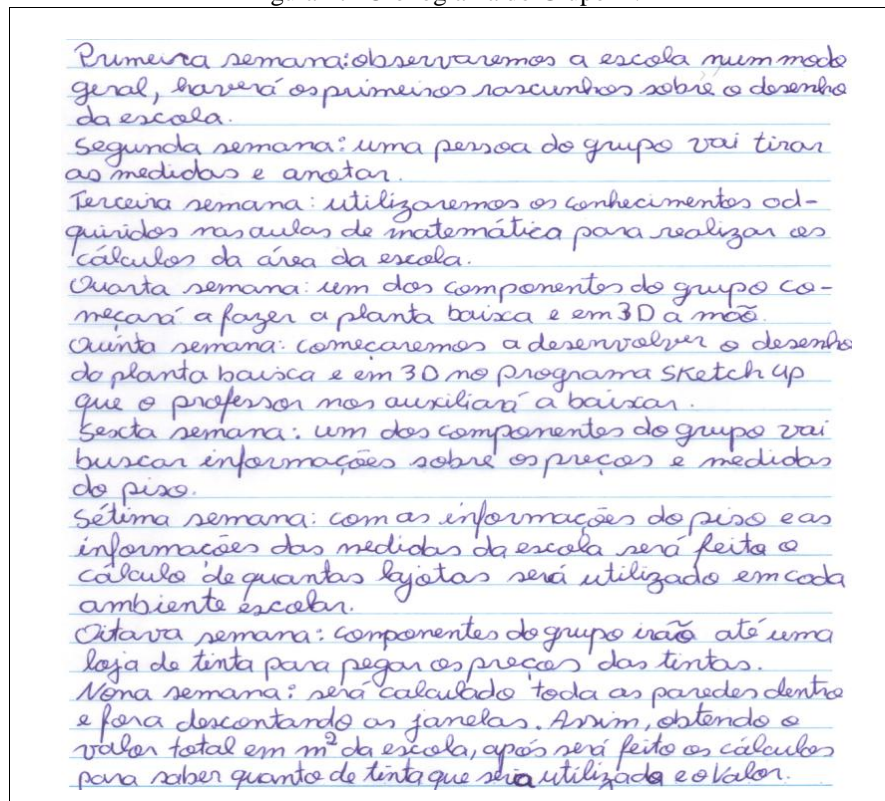 Primeira semana: observaremos a escola num modo
geral, haverá os primeiros rascunhos sobre o desenho
da escola.
Segunda semana: uma pessoa do grupo vai tirar
as medidas e anotar.
Terceira semana: utilizaremos os conhecimentos ad-
quiridos nas aulas de matemática para realizar os
cálculos da área da escola.
Quarta semana: um dos componentes do grupo co-
meçará a fazer a planta baixa e em 3D a mão.
Quinta semana: começaremos a desenvolver o desenho
da planta baixa e em 3D no programa Sketch up
que o professor nos auxiliará a baixar.
Sexta semana: um dos componentes do grupo vai
buscar informações sobre os preços e medidas
do piso.
Sétima semana: com as informações do piso e as
informações das medidas da escola será feito o
cálculo de quantas lajotas será utilizado em cada
ambiente escolar.
Oitava semana: componentes do grupo irão até uma
loja de tinta para pegar os preços das tintas.
Nona semana: será calculado toda as paredes dentro
e fora descontando as janelas. Assim, obtendo o
valor total em m² da escola, após será feito os cálculos
para saber quanto de tinta que seria utilizada e o valor.